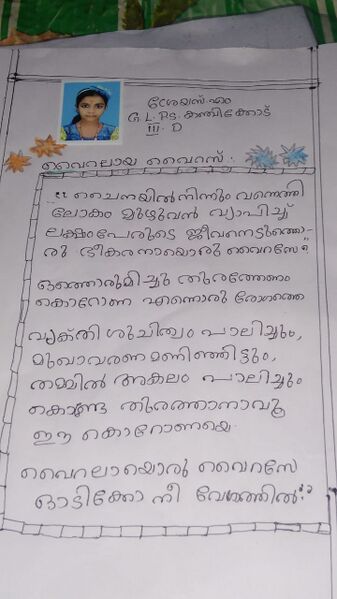 ശ്രേയസ് എം
G. L. P. S. കഞ്ചിക്കോട്
III. D
വൈറലായ വൈറസ്
"ചൈനയിൽനിന്നും വന്നെത്തി
ലോകം മുഴുവൻ വ്യാപിച്ച്
ലക്ഷംപേരുടെ ജീവനെടുത്തൊ-
രു ഭീകരനായൊരു വൈറസേ
ഒത്തൊരുമിച്ചു തുരത്തേണം
കൊറോണ എന്നൊരു രോഗത്തെ
വ്യക്തി ശുചിത്വം പാലിച്ചും,
മുഖാവരണമണിഞ്ഞിട്ടും,
തമ്മിൽ അകലം പാലിച്ചും
കൊണ്ടേ തുരത്താനാവൂ
ഈ കൊറോണയെ
വൈറലായൊരു വൈറസേ
ഓടിക്കോ നീ വേഗത്തിൽ"